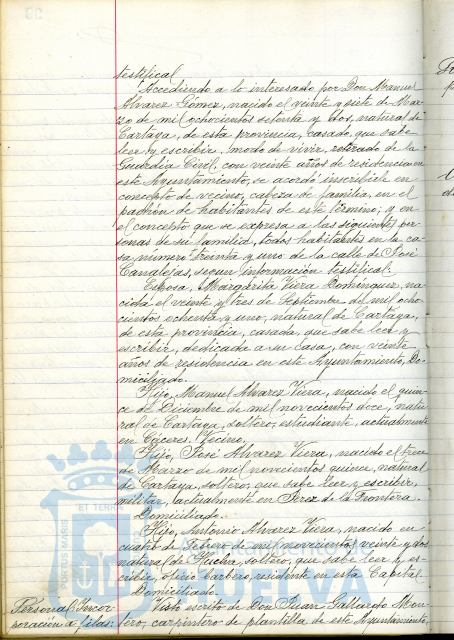 testifical
Accediendo a lo interesado por Don Manuel
Alvarez Gómez, nacido el veinte y siete de Mar-
zo de mil ochocientos setenta y dos, natural de
Cartaya, de esta provincia, casado, que sabe
leer y escribir, modo de vivir, retirado de la
Guardia Civil, con veinte años de residencia en
este Ayuntamiento, se acordó inscribirle en
concepto de vecino, cabeza de familia, en el
padrón de habitantes de este término, y en
el concepto que se expresa a las siguientes per-
sonas de su familia, todos habitantes en la ca-
sa número treinta y uno de la calle de José
Canalejas, segun información testifical:
Esposa, Margarita Viera Domínguez, na-
cida el veinte y tres de Septiembre de mil ocho-
cientos ochenta y uno, natural de Cartaya,
de esta provincia, casada, que sabe leer y
escribir, dedicada a su casa, con veinte
años de residencia en este Ayuntamiento, Do-
miciliado.
Hijo, Manuel Alvarez Viera, nacido el quin-
ce de Diciembre de mil novecientos doce, natu-
ral de Cartaya, soltero, estudiante, actualmente
en Cáceres. Vecino.
Hijo, José Alvarez Viera, nacido el trece
de Marzo de mil novecientos quince, natural
de Cartaya, soltero, que sabe leer y escribir,
militar, actualmente en Jerez de la Frontera.
Domiciliado.
Hijo, Antonio Alvarez Viera, nacido en
cuatro de Febrero de mil novecientos veinte y dos
natural de Huelva, soltero, que sabe leer y es-
cribir, oficio barbero, residente en esta Capital.
Domiciliado.
Personal, Incor-
poración a filas.
Visto escrito de Don Juan Gallardo Mon-
tero, carpintero de plantilla de este Ayuntamiento,
PORTUS MARIS
ET TERRAE
HUELVA